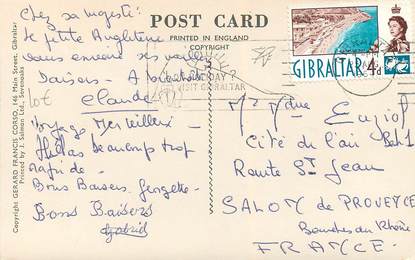 POST CARD
PRINTED IN ENGLAND
COPYRIGHT
Copyright GERARD FRANCIS CORSO, 146 Main Street, Gibraltar
Printed by J. Salmon Ltd., Sevenoaks
Chez sa majesté:
la petite Angleterre
vous envoie ses
Baisers - A bientôt
Claude
Voyage Merveilleux
Hélas beaucoup trop
rapide -
Bons Baisers Georgette -
Bons Baisers
Gabriel
VISIT GIBRALTAR
GIBRALTAR 4d
Mr Mme
Cité du lai Bat 1
Route St Jean
SALON de PROVENCE
Bouches du Rhône
FRANCE